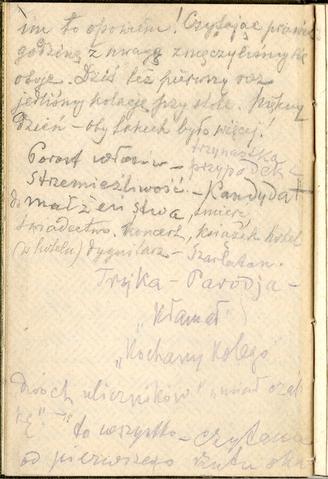 im to opowiem! Czytając prawie
godzinę z uwagą zmęczyliśmy się
oboje. Dziś też pierwszy raz
jedliśmy kolację przy stole. Piękny
dzień – oby takich było więcej!
Porost włosów – trzynastka
przypadek –
Strzemięźliwość. – Kandydat
do małżeństwa, śmierć,
świadectwo. Koncert, książek
(w hotelu) dygnitarz – Szarlatan.
Trójka – Parodja –
"Kłamał"
"Kochany Kolego"
Dwóch uliczników" "miał
" – to wszystko – czytane
od pierwszego rzutu oka